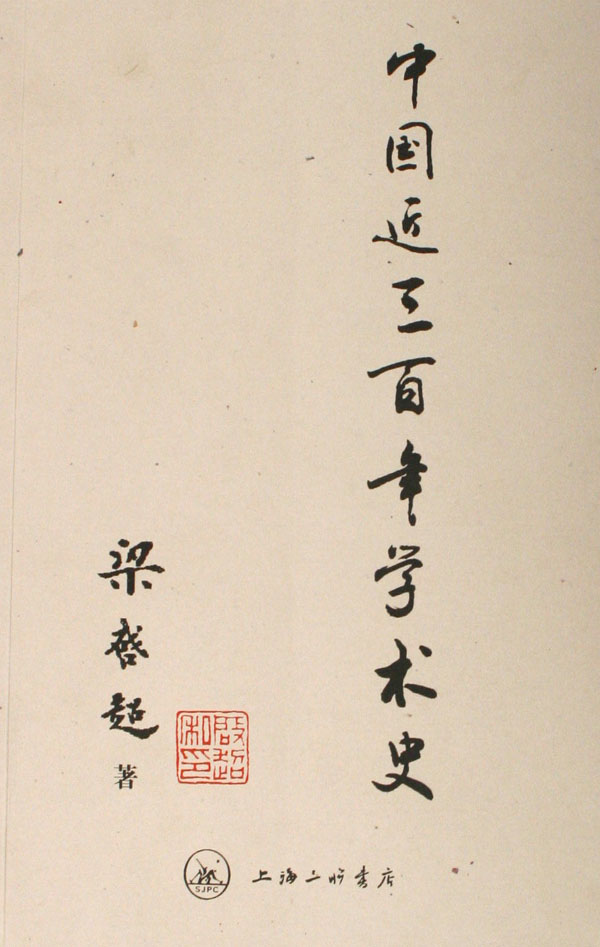 中国近三百年学术史
梁啓超
著
啟超私印
SJPC
上海三联书店